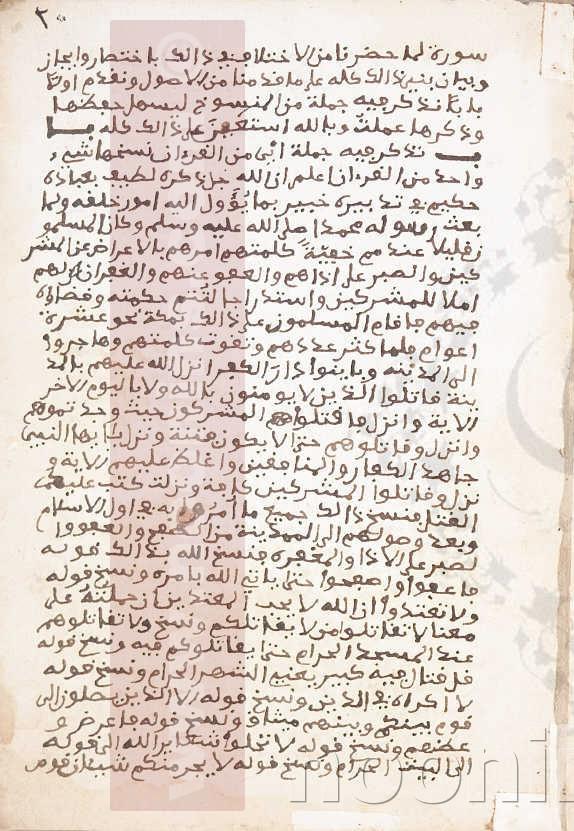 ٢٠
سورة لما حضرنا من الاختلاف في ذلك باختصار وايجاز
وبيان نبني ذلك كله على ما قدمنا من الاصول ونقدم اولا
بابا نذكر فيه جملة من المنسوخ ليسهل حفظها
وذكرها عملت وبالله استعين على ذلك كله بـــا
ب نذكر فيه جملة اتى من القرءان نسخها شيء
واحد من القرءان اعلم ان الله جل ذكره لطيف بعباده
حكيم في تدبيره خبير بما يؤول اليه امور خلقه ولما
بعث رسوله محمدا صلى الله عليه وسلم وكان المسلمو
ن قليلا عندهم خفية كلمتهم امرهم بالاعراض عن المشر
كين والصبر على اذاهم والعفو عنهم والغفران لهم
املا للمشركين واستدراجا لتتم حكمته وقضاؤه
فيهم فاقام المسلمون على ذلك بمكة نحو عشرة
اعوام فلما كثر عددهم وتقوت كلمتهم وهاجروا
الى المدينة وباينوا دار الكفر انزل الله عليهم بالمد
ينة قاتلوا الذين لا يومنون بالله ولا باليوم الاخر
الاية وانزل فاقتلوا المشركون حيث وجدتموهم
وانزل وقاتلوهم حتى لا يكون فتنة ونزل يا ايها النبي
جاهد الكفار والمنافقين واغلظ عليهم الاية و
نزل وقاتلوا المشركين كافة ونزلت كتب عليكم
القتل فنسخ ذلك جميع ما امروا به في اول الاسلام
وبعد وصولهم الى المدينة من الصفح والعفو وا
لصبر على الاذا والمغفرة فنسخ الله بذلك نحو قوله
فاعفوا واصفحوا حتى ياتي الله بامره ونسخ قوله
ولا تعتدوا ان الله لا يحب المعتدين ان حملته على
معنا لا تقاتلوا من لا يقاتلكم ونسخ ولا تقاتلوهم
عند المسجد الحرام حتى يقاتلوكم فيه ونسخ قوله
قل قتال فيه كبير يعني الشهر الحرام ونسخ قوله
لا اكراه في الدين ونسخ قوله الا الذين يصلون الى
قوم بينكم وبينهم ميثاق ونسخ قوله فاعرض و
عظهم ونسخ قوله لا تحلوا شعاير الله الى قوله
الى البيت الحرام ونسخ قوله لا يجرمنكم شنيان قوم